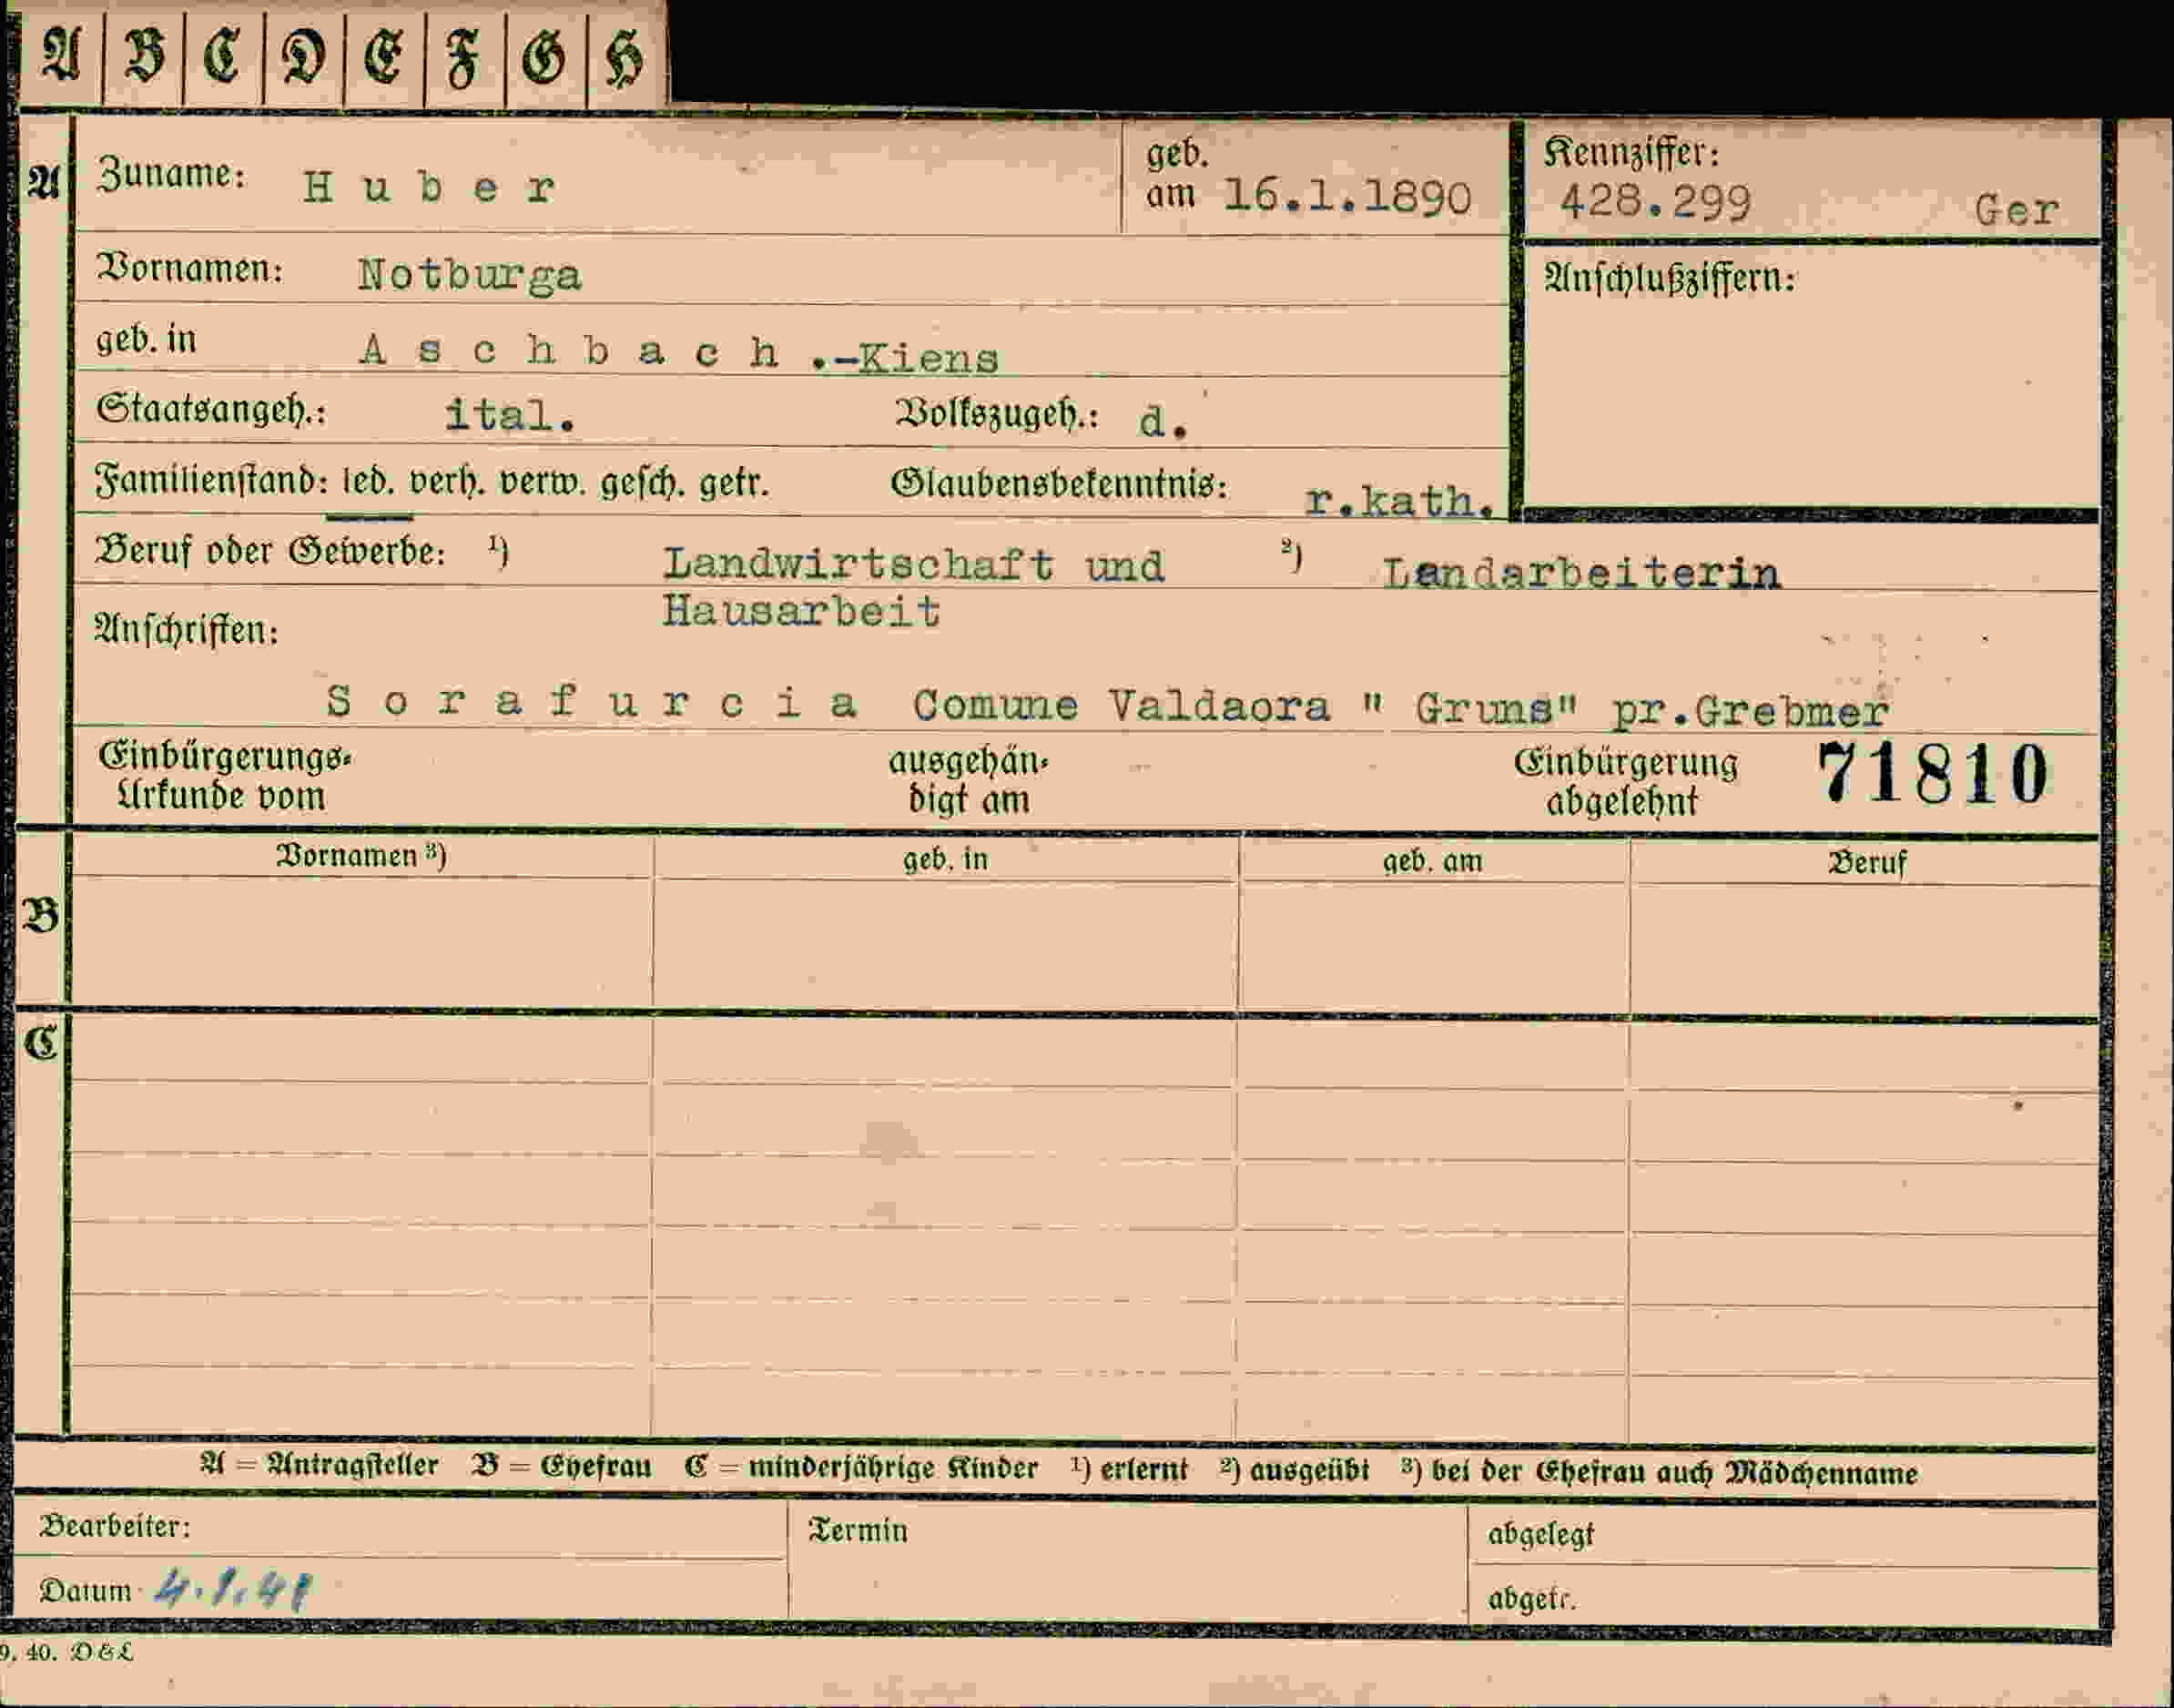 A B C D E F G H
A Zuname: Huber geb. am 16.1.1890 Kennziffer: 428.299 Ger
Vornamen: Notburga Anschlußziffern:
geb. in Aschbach.-Kiens
Staatsangeh.: ital. Volkszugeh.: d.
Familienstand: led. verh. verw. gesch. getr. Glaubensbekenntnis: r.kath.
Beruf oder Gewerbe: ¹) Landwirtschaft und ²) Landarbeiterin
Hausarbeit
Anschriften:
Sorafurcia Comune Valdaora " Gruns" pr.Grebmer
Einbürgerungs- Urkunde vom ausgehän- digt am Einbürgerung abgelehnt 71810
Vornamen ³) geb. in geb. am Beruf
B
C
A = Antragsteller B = Ehefrau C = minderjährige Kinder ¹) erlernt ²) ausgeübt ³) bei der Ehefrau auch Mädchenname
Bearbeiter: Termin abgelegt
Datum 4.1.41 abgetr.
9. 40. D & L